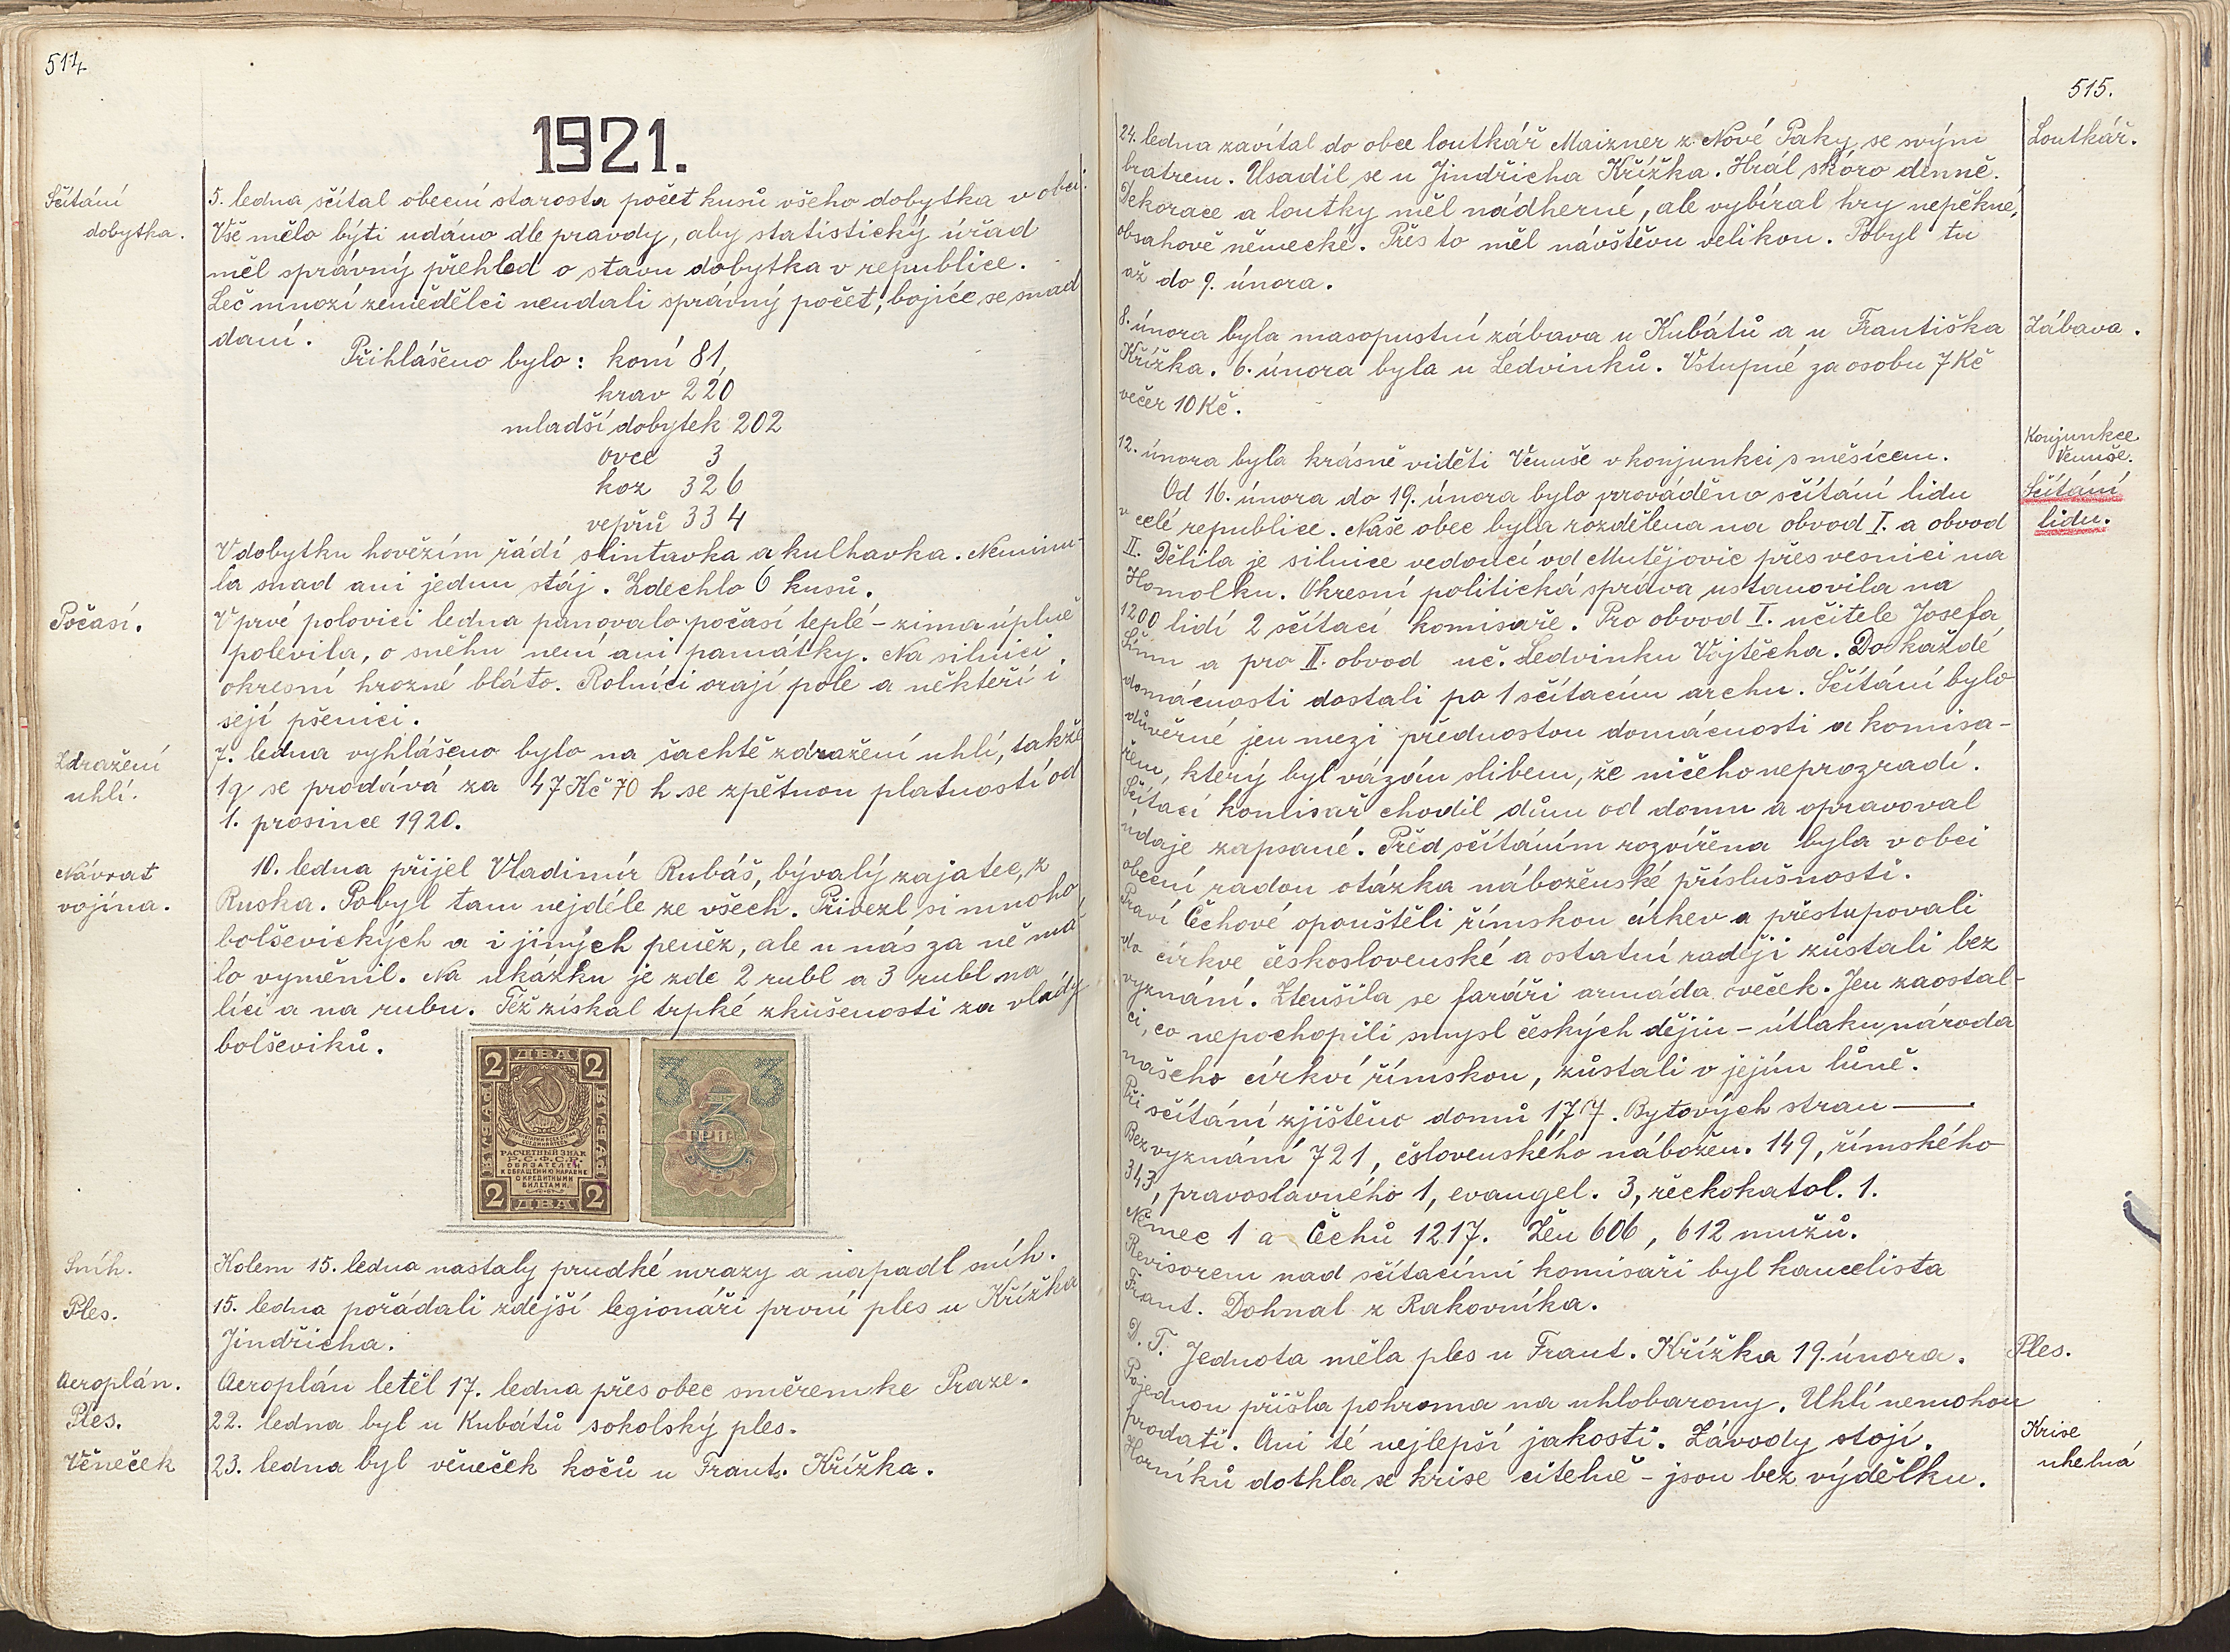 514
1921.
Sčítání
dobytka.
5. ledna sčítal obecní starosta počet kusů všeho dobytka v obci.
Vše mělo býti udáno dle pravdy, aby statistický úřad
měl správný přehled o stavu dobytka v republice.
Leč mnozí zemědělci neudali správný počet, bojíce se snad
daní.
Přihlášeno bylo: koní 81,
krav 220
mladší dobytek 202
ovce 3
koz 326
vepřů 334
V dobytku hovězím řádí slintavka a kulhavka. Neminu-
la snad ani jednu stáj. Zdechlo 6 kusů.
Počasí.
V prvé polovici ledna panovalo počasí teplé - zima úplně
polevila, o sněhu není ani památky. Na silnici
okresní hrozné bláto. Rolníci orají pole a někteří i
sejí pšenici.
Zdražení
uhlí.
7. ledna vyhlášeno bylo na šachtě zdražení uhlí, takže
1q se prodává za 47 Kč 70 h se zpětnou platností od
1. prosince 1920.
Návrat
vojína.
10. ledna přijel Vladimír Rubáš, bývalý zajatec, z
Ruska. Pobyl tam nejdéle ze všech. Přivezl si mnoho
bolševických a i jiných peněz, ale u nás za ně má-
lo vyměnil. Na ukázku je zde 2 rubl a 3 rubl na
líci a na rubu. Též získal trpké zkušenosti za vlády
bolševiků.
2 ДВА 2
ПРОЛЕТАРИИ ВСЕХ СТРАН
СОЕДИНЯЙТЕСЬ
РАСЧЕТНЫЙ ЗНАК
Р.С.Ф.С.Р.
ОБЯЗАТЕЛЕН
К ОБРАЩЕНИЮ НАРАВНЕ
С КРЕДИТНЫМИ
БИЛЕТАМИ.
2 ДВА 2
3 3
3
ТРИ
Sníh.
Kolem 15. ledna nastaly prudké mrazy a napadl sníh.
Ples.
15. ledna pořádali zdejší legionáři první ples u Křížka
Jindřicha.
Aeroplán.
Aeroplán letěl 17. ledna přes obec směrem ke Praze.
Ples.
22. ledna byl u Kubátů sokolský ples.
Věneček
23. ledna byl věneček kočů u Frant. Křížka.
515.
Loutkář.
24. ledna zavítal do obce loutkář Maizner z Nové Paky se svým
bratrem. Usadil se u Jindřicha Křížka. Hrál skóro denně.
Dekorace a loutky měl nádherné, ale vybíral hry nepěkné,
obsahově německé. Přes to měl návštěvu velikou. Pobyl tu
až do 9. února.
Zábava.
8. února byla masopustní zábava u Kubátů a u Františka
Křížka. 6. února byla u Ledvinků. Vstupné za osobu 7 Kč
večer 10 Kč.
Konjunkce
Venuše.
12. února byla krásně viděti Venuše v konjunkci s měsícem.
Sčítání
lidu.
Od 16. února do 19. února bylo prováděno sčítání lidu
v celé republice. Naše obec byla rozdělena na obvod I. a obvod
II. Dělila je silnice vedoucí od Mutějovic přes vesnici na
Homolku. Okresní politická správa ustanovila na
1200 lidí 2 sčítací komisaře. Pro obvod I. učitele Josefa
a pro II. obvod uč. Ledvinku Vojtěcha. Do každé
domácnosti dostali po 1 sčítacím archu. Sčítání bylo
důvěrné jen mezi přednostou domácnosti a komisa-
řem, který byl vázán slibem, že ničeho neprozradí.
Sčítací komisař chodil dům od domu a opravoval
údaje zapsané. Před sčítáním rozvířena byla v obci
obecní radou otázka náboženské příslušnosti.
Praví Čechové opouštěli římskou církev a přestupovali
do církve československé a ostatní raději zůstali bez
vyznání. Ztenšila se faráři armáda oveček. Jen zaostal-
ci, co nepochopili smysl českých dějin - útlaku národa
našeho církví římskou, zůstali v jejím lůně.
Při sčítání zjištěno domů 177. Bytových stran —
Bez vyznání 721, čslovenského nábožen. 149, římského
343, pravoslavného 1, evangel. 3, řeckokatol. 1.
Němec 1 a Čechů 1217. Žen 606, 612 mužů.
Revisorem nad sčítacími komisaři byl kancelista
Frant. Dohnal z Rakovníka.
Ples.
D. T. Jednota měla ples u Frant. Křížka 19. února.
Krise
uhelná
Pojednou přišla pohroma na uhlobarony. Uhlí nemohou
prodati. Ani té nejlepší jakosti. Závody stojí.
Horníků dotkla se krise citelně - jsou bez výdělku.